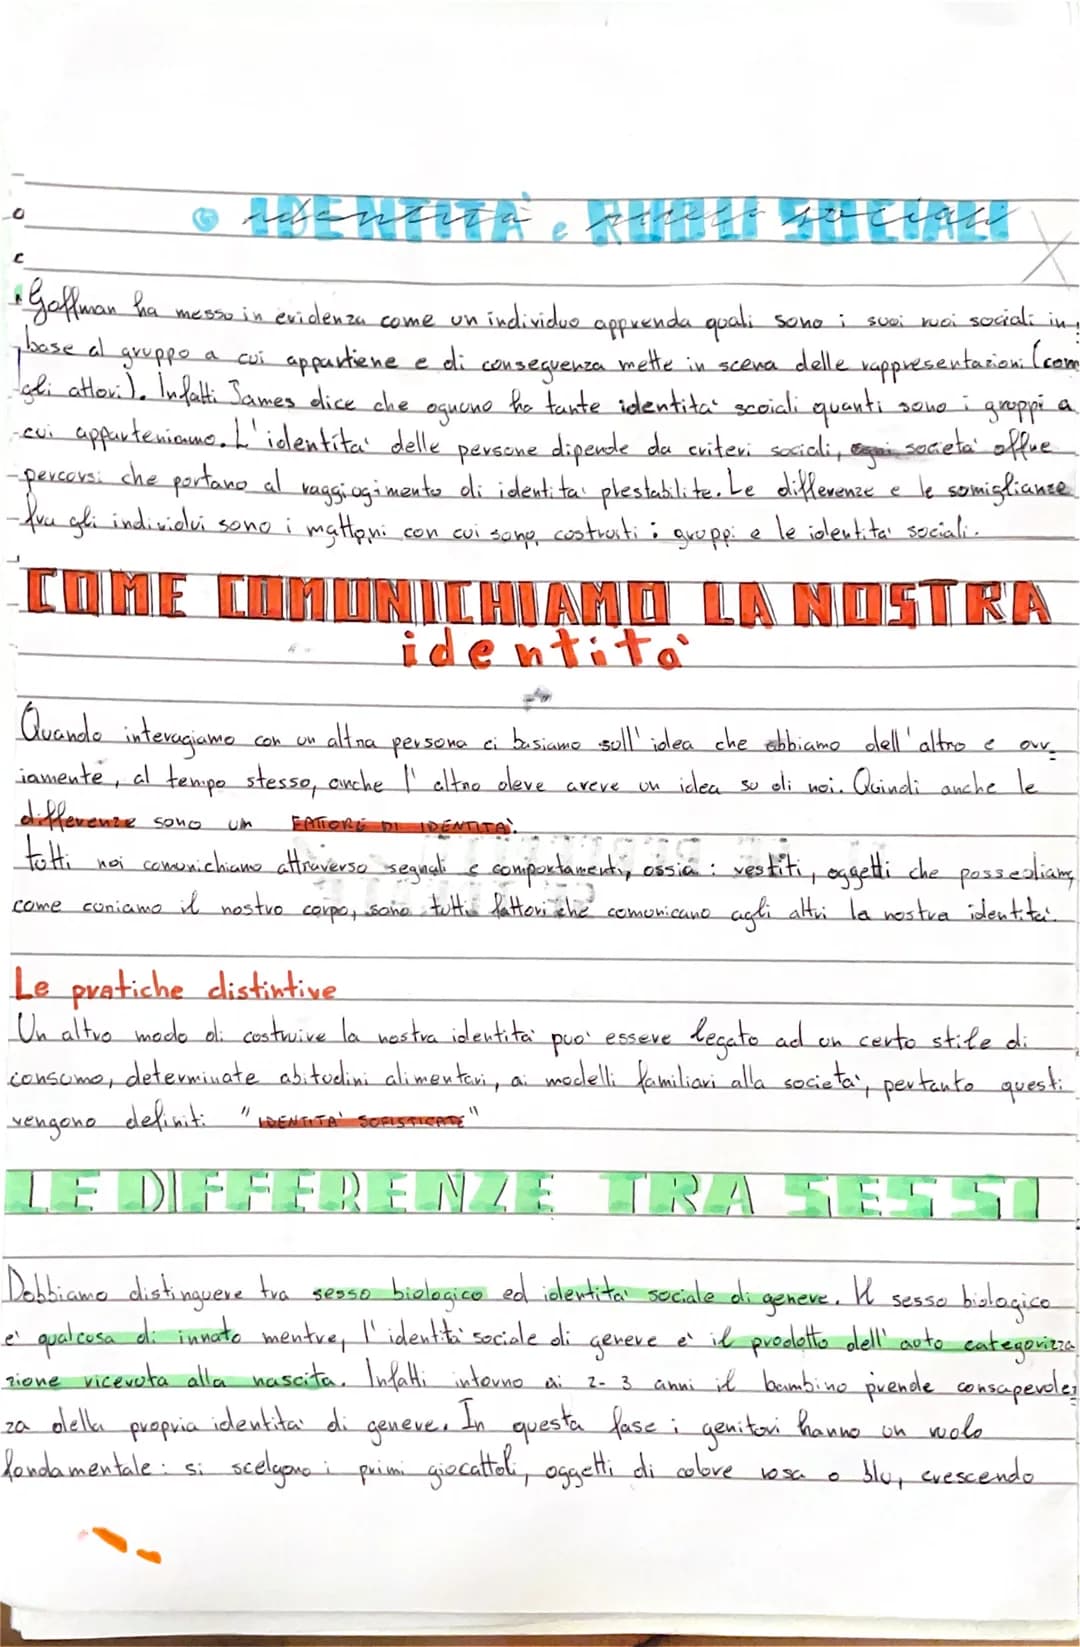 IDENTITÀ e RUOLI SOCIALI
Goffman ha messo in evidenza come un individuo apprenda quali sono i suoi ruoi sociali in
base al gruppo a cui appartiene e di conseguenza mette in scena delle rappresentazioni (com
gli attori). Infatti James dice che ognuno ha tante identita' scoiali quanti sono i gruppi a
cui apparteniamo. L'identita' delle persone dipende da criteri sociali, ogni societa' offre
percorsi che portano al raggiogimento di identita' plestabilite. Le differenze e le somiglianze
fra gli individui sono i mattoni con cui sono costruiti i gruppi e le identita' sociali.
COME COMUNICHIAMO LA NOSTRA
identità
Quando interagiamo con un altra persona ci basiamo sull'idea che abbiamo dell'altro e ovv
iamente, al tempo stesso, anche l'altro deve avere un idea su di noi. Quindi anche le
differenze sono um FATTORE DI IDENTITA'.
tutti noi comunichiamo attraverso segnali e comportamenti, ossia: vestiti, oggetti che possediamo,
come curiamo il nostro corpo, sono tutti fattori che comunicano agli altri la nostra identita'.
Le pratiche distintive
Un altro modo di costruire la nostra identita' puo' essere legato ad un certo stile di
consumo, determinate abitudini alimentari, ai modelli familiari alla societa', pertanto questi
vengono definiti "IDENTITA' SOFISTICATE"
LE DIFFERENZE TRA SESSI
Dobbiamo distinguere tra sesso biologico ed identita' sociale di genere. Il sesso biologico
e' qualcosa di innato mentre, l'identita' sociale di genere e' il prodotto dell'auto categorizza
zione ricevuta alla nascita. Infatti intorno ai 2-3 anni il bambino prende consapevolez
za della propria identita' di genere. In questa fase i genitori hanno un ruolo
fondamentale: si scelgono i primi giocattoli, oggetti di colore rosa o blu, crescendo